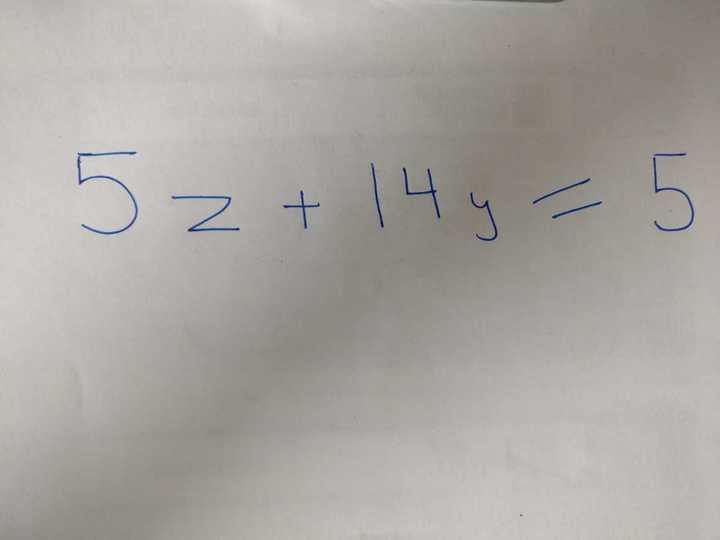 5z + 14y = 5